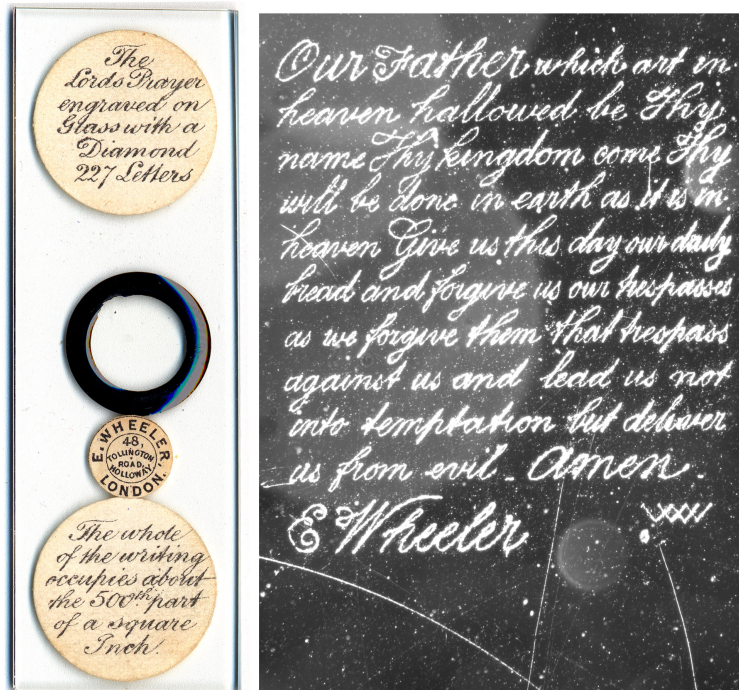 The
Lords Prayer
engraved on
Glass with a
Diamond
227 Letters
E. WHEELER,
48,
TOLLINGTON
ROAD,
HOLLOWAY,
LONDON.
The whole
of the writing
occupies about
the 500th part
of a square
Inch.
Our Father which art in
heaven hallowed be Thy
name Thy kingdom come Thy
will be done in earth as it is in
heaven Give us this day our daily
bread and forgive us our trespasses
as we forgive them that trespass
against us and lead us not
into temptation but deliver
us from evil - Amen -
E Wheeler